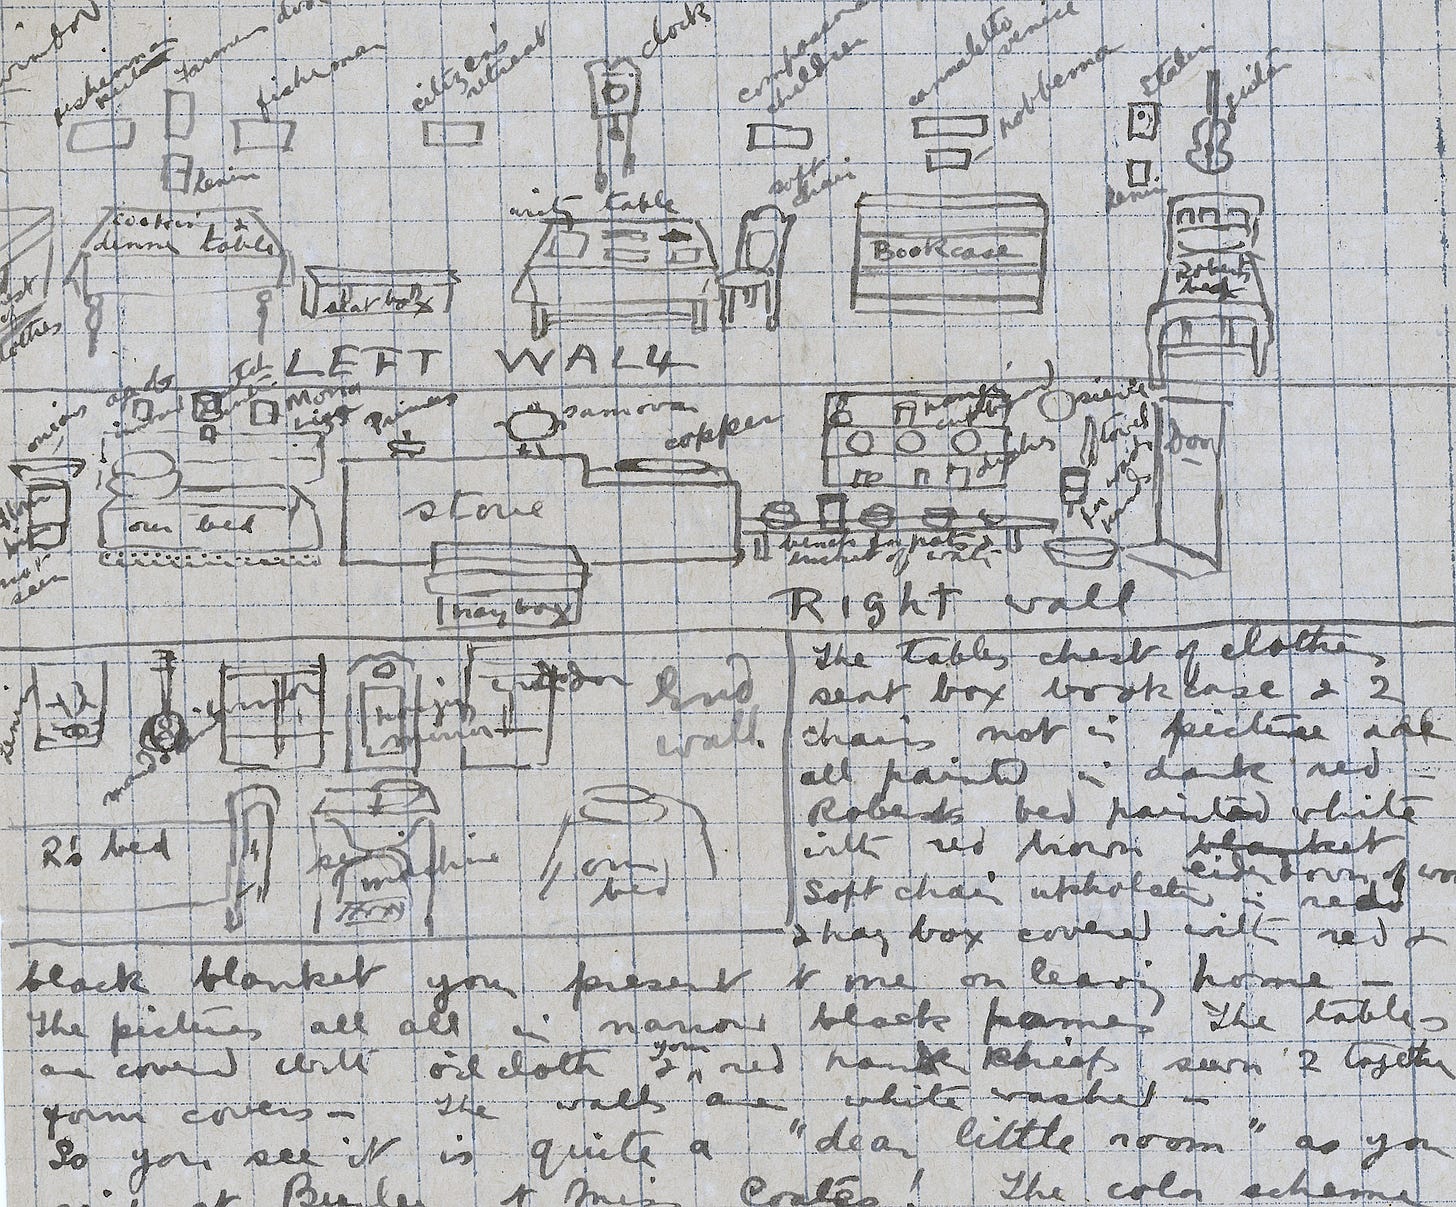 window
Farmer
fisherman
citizen's
retreat
clock
children
canaletto
venice
nobleman
Stalin
guitar
Lenin
Lenin
cookin' &
dinner table
seat box
writ table
soft
chair
Bookcase
Robert
bed
LEFT WALL
onions
Mona
Lisa
Primus
samovar
copper
dishes
sieve
towel
for
hands
Door
not
seen
our bed
stove
hay box
bench for pots &
bucket of water
Right wall
End
wall
mirror
R's bed
machine
our
bed
The tables chest of clothes
seat box bookcase & 2
chairs not in picture are
all painted in dark red —
Roberts bed painted white
with red brown blanket
eiderdown of
Soft chair upholster in red
& hay box covered with red &
black blanket you present to me on leaving home —
The pictures all all in narrow black frames The tables
are covered with oil cloth your 2 red hand kchiefs sewn 2 together
form covers — The walls are white washed —
So you see it is quite a "dear little room" as you
Miss Coates! The color scheme